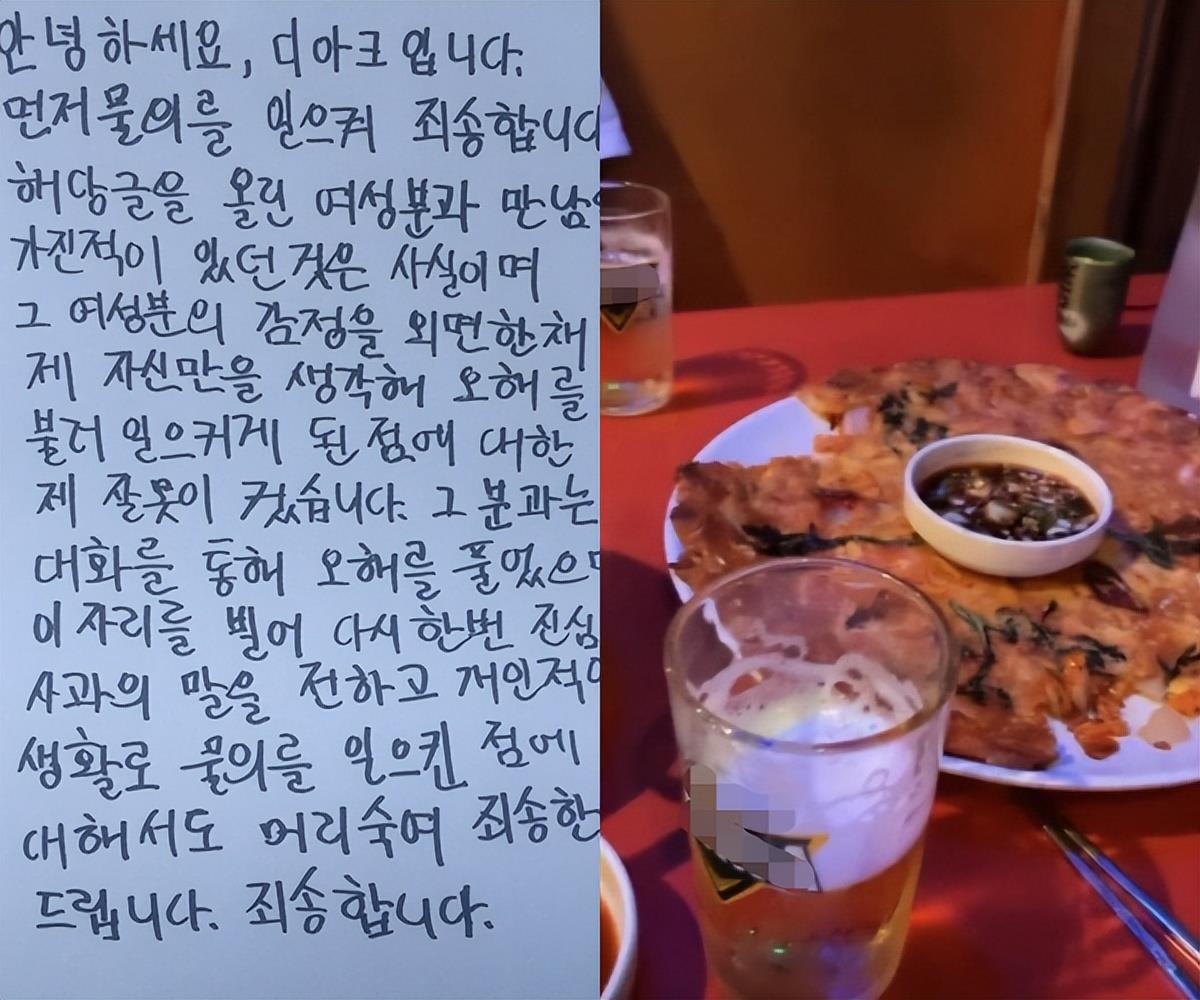 안녕하세요, 디아크 입니다.
먼저 물의를 일으켜 죄송합니다
해당글을 올린 여성분과 만남
가진적이 있던것은 사실이며
그 여성분의 감정을 외면한채
제 자신만을 생각해 오해를
불러 일으키게 된 점에 대한
제 잘못이 컸습니다. 그분과는
대화를 통해 오해를 풀었으
이 자리를 빌어 다시한번 진심
사과의 말을 전하고 개인적
생활로 물의를 일으킨 점에
대해서도 머리숙여 죄송한
드립니다. 죄송합니다.